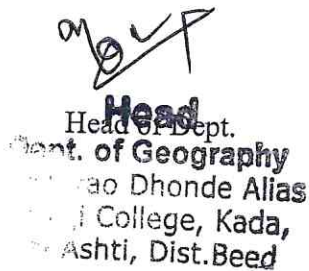 Head of Dept.
Head
Dept. of Geography
ao Dhonde Alias
i College, Kada,
Ashti, Dist.Beed